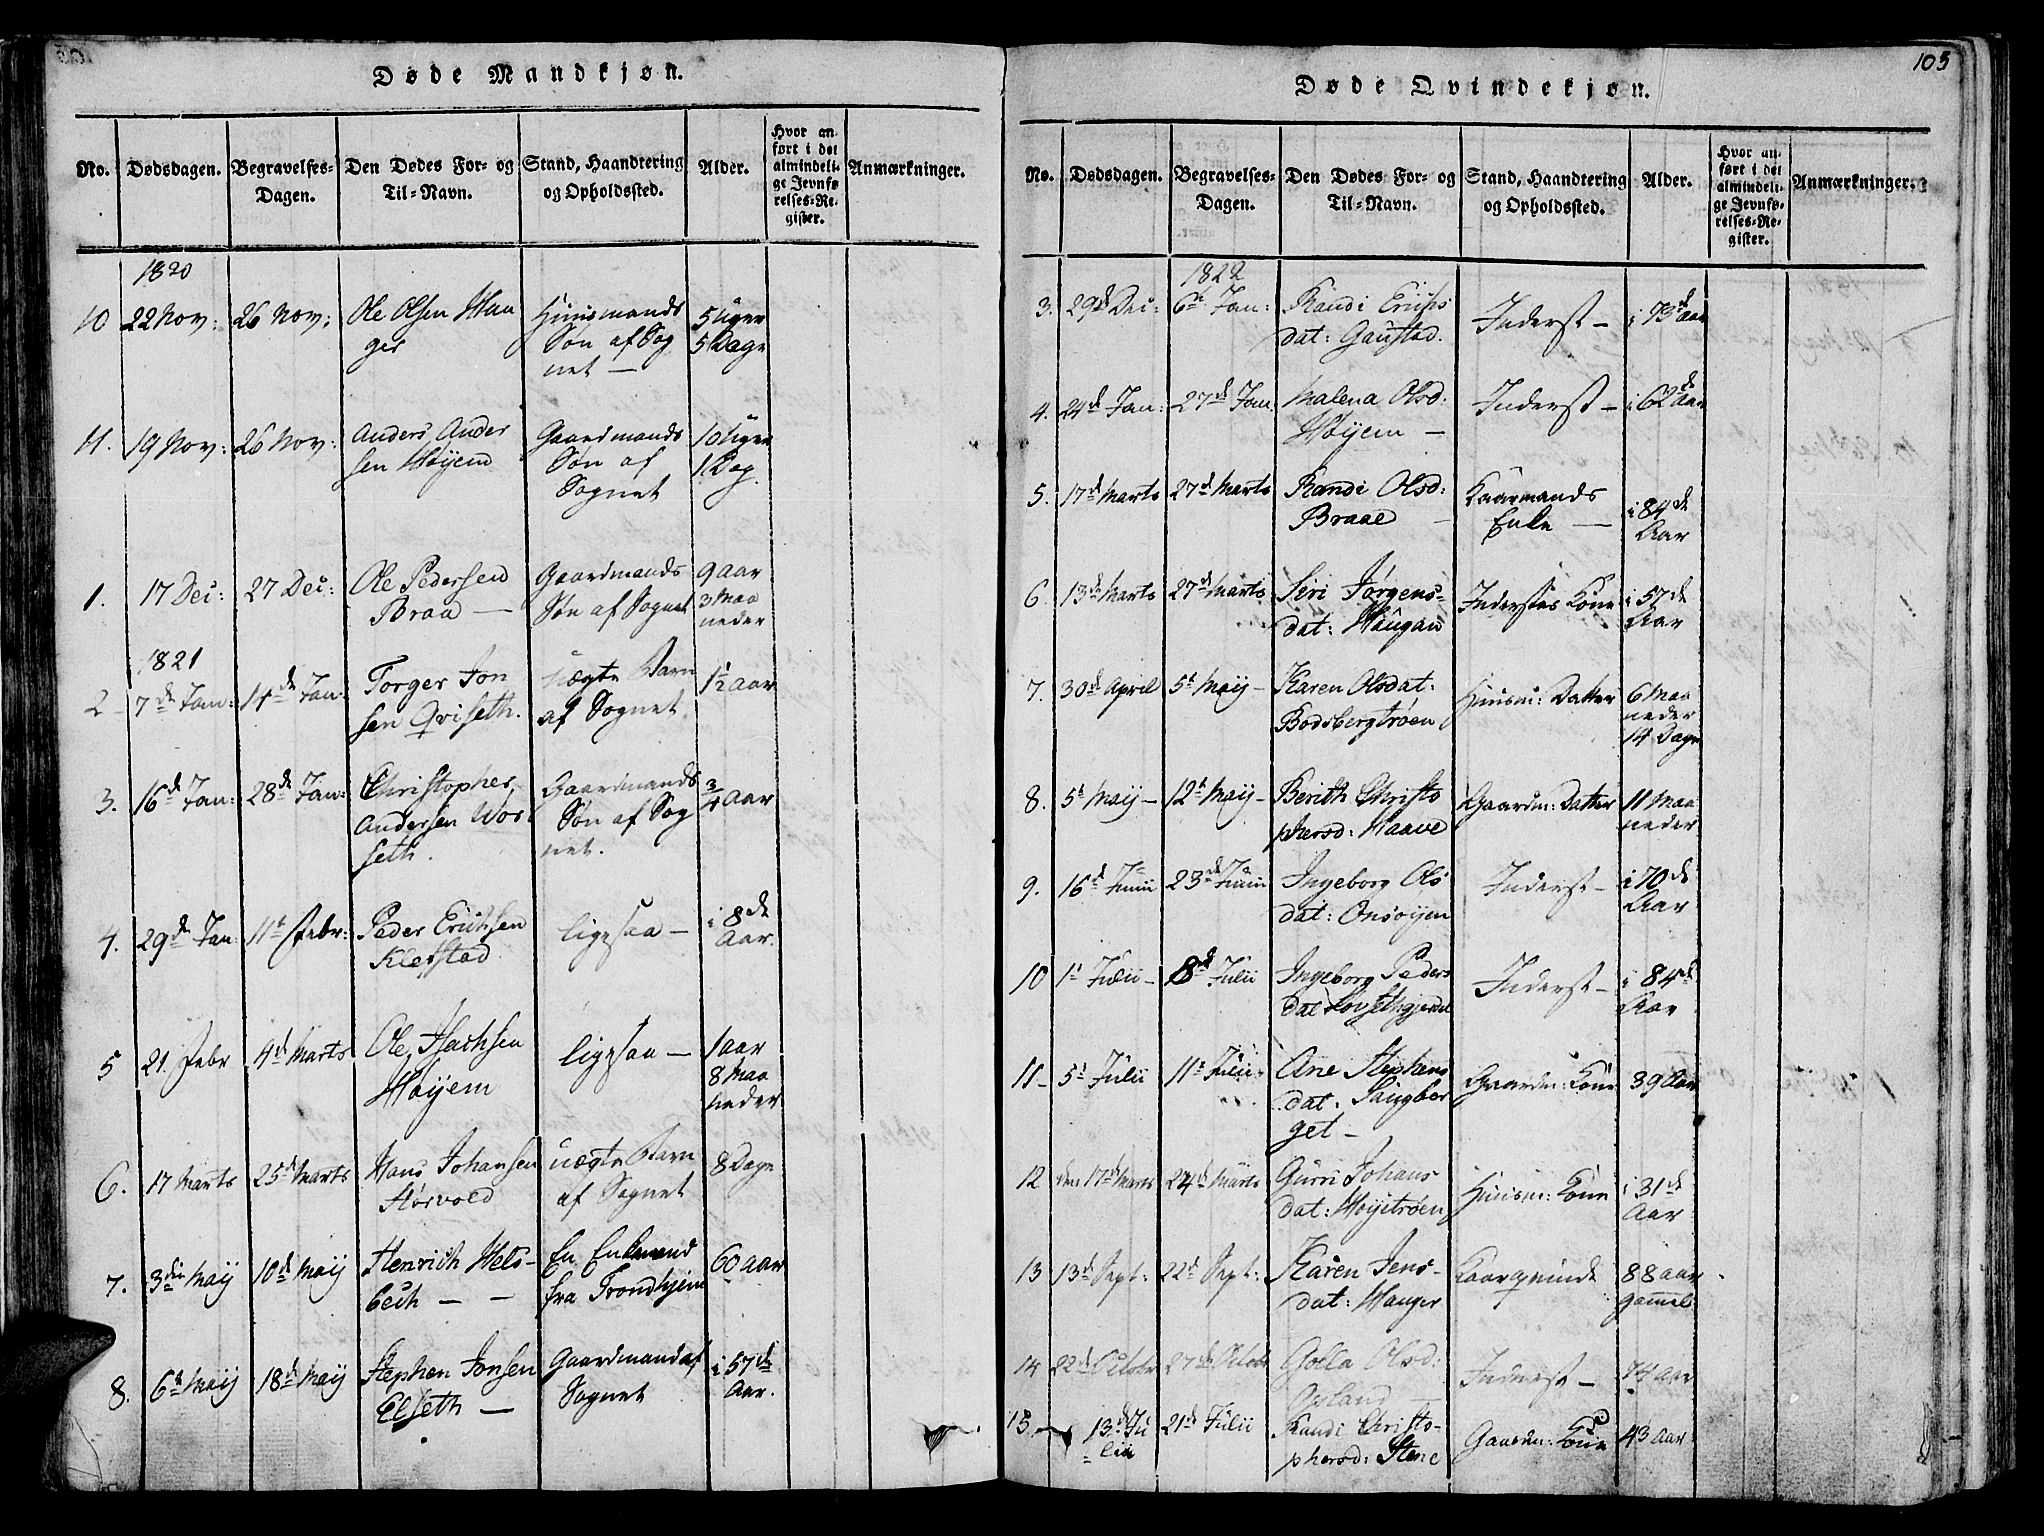 Døde Mandkjøn.
No. Dødsdagen. Begravelses-Dagen. Den Dødes For- og Til-Navn. Stand, Haandtering og Opholdssted. Alder. Hvor anført i det almindelige Jevnførelses-Register. Anmærkninger.
1820
10 22 Nov: 26 Nov: Ole Olsen Hauger Huusmands Søn af Sognet — 5 Uger 5 Dage
11. 19 Nov: 26 Nov: Anders Andersen Høyem Gaardmands Søn af Sognet 10 Uger 1 Dag.
1. 17 Dec: 27 Dec: Ole Pedersen Braa — Gaardmands Søn af Sognet 9 aar 3 Maaneder
1821
2 7de Jan: 14de Jan: Torger Jonsen Qviseth. uægte Barn af Sognet 1½ aar
3. 16de Jan: 28de Jan: Christopher Andersen Worseth. Gaardmands Søn af Sognet. ¾ aar
4. 29de Jan: 11te Febr: Peder Erichsen Kletstad ligesaa — i 8de Aar.
5 21. Febr 4de Marts Ole Isachsen Høyem ligesaa — 1 aar 8 Maaneder
6. 17 Marts 25de Marts Hans Johansen Størvold uægte Barn af Sognet 8 Dage
7. 3die Maij 10de Maij Henrich Wetsbech — — En Enkemand fra Trondhjem 60 aar
8. 6te Maij 18de Maij Stephen Jonsen Elseth — Gaardmand af Sognet i 57de Aar.
105
Døde Qvindekjøn.
No. Dødsdagen. Begravelses-Dagen. Den Dødes For- og Til-Navn. Stand, Haandtering og Opholdssted. Alder. Hvor anført i det almindelige Jevnførelses-Register. Anmærkninger.
1822
3. 29de Dec: 6te Jan: Randi Erichsdat: Gaustad. Inderst — i 73de aar
4. 24de Jan: 27de Jan: Malena Olsd: Høyem — Inderst — i 62de aar
5. 17de Marts 27de Marts Randi Olsd: Braae — Kaarmands Enke — i 84de Aar
6 13de Marts 27de Marts Siri Jørgensdat: Haugan Inderstes Kone i 57de Aar
7. 30de April 5te Maij — Karen Olsdat: Bodsbergtrøen Huusm: Datter 6 Maaneder 14 Dage
8. 5te Maij — 12te Maij — Berith Christophersd: Haave Gaardm: Datter 11 Maaneder
9. 16de Junii 23de Junii Ingeborg Olsdat: Onsøyen Inderst — i 70de Aar
10 1te Julii — 8de Julii Ingeborg Pedersdat Inderst — i 84de Aar
11 — 5te Julii 11te Julii — Ane Stephensdat: Saugberget — Gaardm: Kone 39 Aar
12 den 17de Marts 24de Marts Gurri Johansdat: Høyetrøen Huusm: Kone i 31de Aar
13 13de Sept: 22de Sept: Karen Jensdat: Hauger Kaarqvinde 88 aar gammel
14 22de Octobr 27de Octobr Golla Olsd: Opland — Inderst — 74 aar
15. 13de Julii 21de Julii Randi Christophersd: Stene Gaardm: Kone 43 aar